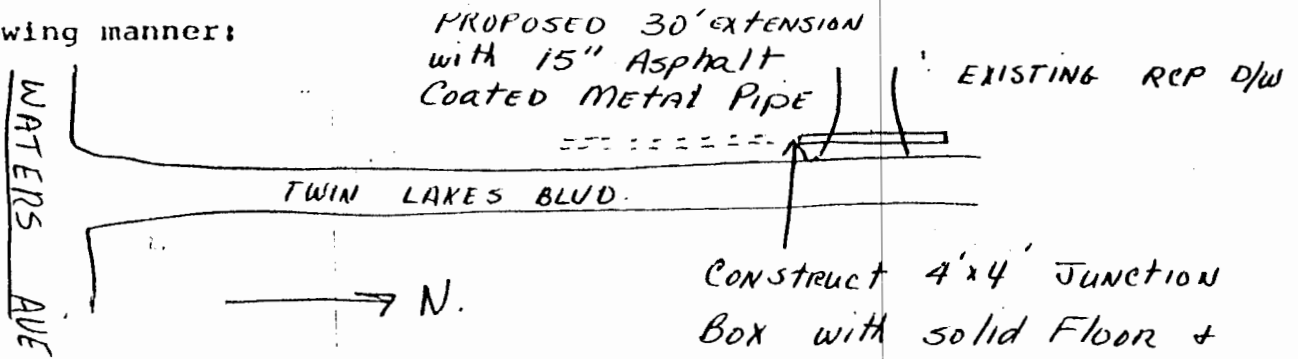 wing manner:
PROPOSED 30' EXTENSION
with 15" Asphalt
COATED METAL PIPE
EXISTING RCP D/W
WATERS AVE
TWIN LAKES BLVD.
N.
CONSTRUCT 4'x4' JUNCTION
BOX with solid FLOOR &